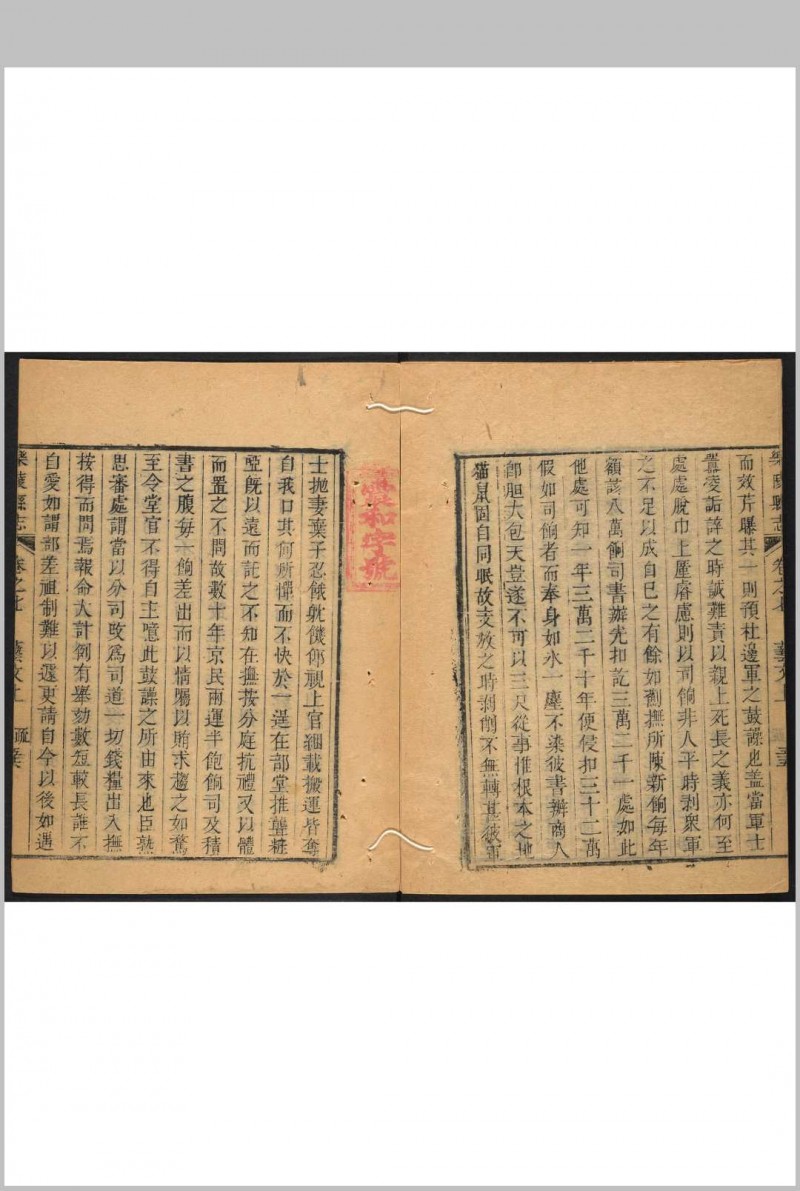 而效芹曝其一則預杜邊軍之鼓譟也蓋當軍士
囂凌詬誶之時誠難責以親上死長之義亦何至
處處脫巾上厪睿慮則以司餉非人平時剥衆軍
之不足以成自己之有餘如薊撫所陳新餉每年
額該八萬餉司書辦先扣訖三萬二千一處如此
他處可知一年三萬二千十年便侵扣三十二萬
假如司餉者而奉身如氷一塵不染彼書辦商人
卽胆大包天豈遂不可以三尺從事惟根本之地
猫鼠固自同眠故支放之時剥削不無轉甚彼軍
士抛妻棄子忍餓躭饑仰視上官綑載搬運皆奪
自我口其何所憚而不快於一逞在部堂推聾粧
啞旣以遠而託之不知在撫按分庭抗禮又以體
而置之不問故數十年京民兩運半飽餉司及積
書之腹每一餉差出而以情囑以賄求趨之如鶩
至令堂官不得自主噫此鼓譟之所由來也臣熟
思審處謂當以分司改爲司道一切錢糧出入撫
按得而問焉報命大計例有舉劾數短較長誰不
自愛如謂部差祖制難以遽更請自今以後如遇
卷之七 藝文上 疏